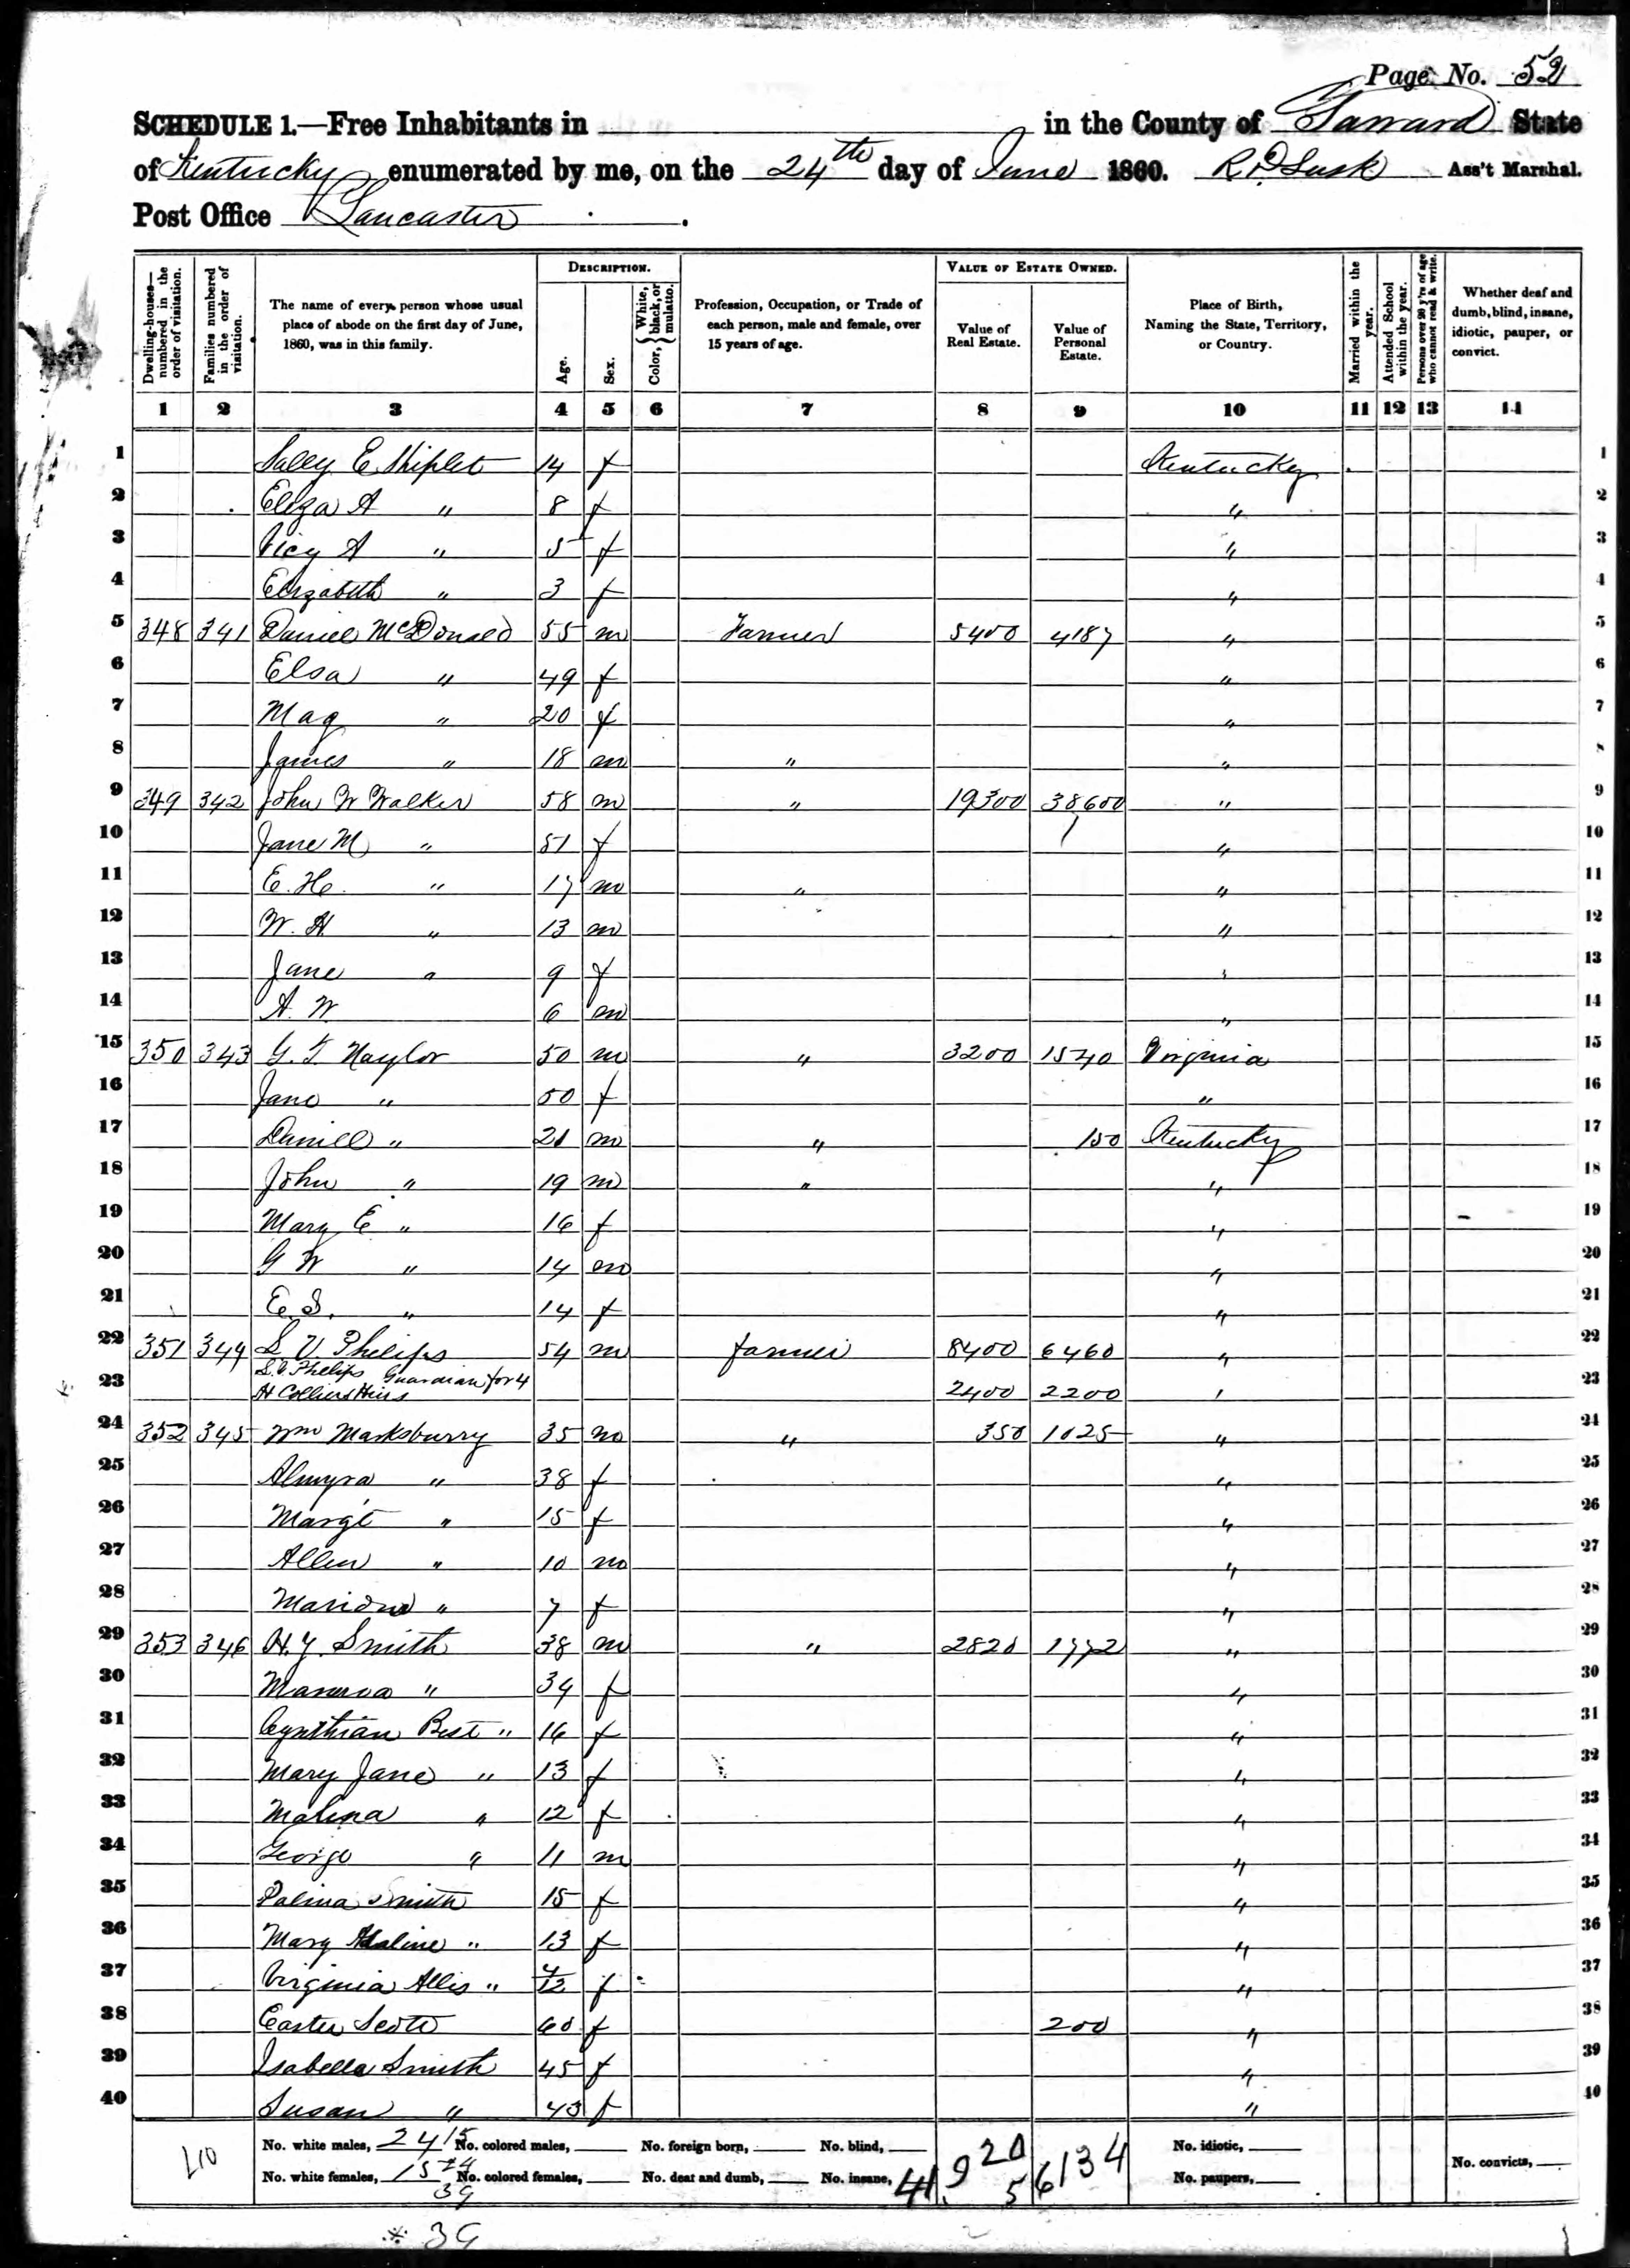 Page No. 52
SCHEDULE 1.—Free Inhabitants in in the County of Garrard State
of Kentucky enumerated by me, on the 24th day of June 1860. R D Lusk Ass't Marshal.
Post Office Lancaster
Dwelling-houses—numbered in the order of visitation.
Families numbered in the order of visitation.
The name of every person whose usual place of abode on the first day of June, 1860, was in this family.
DESCRIPTION.
Age.
Sex.
Color, { White, black, or mulatto.
Profession, Occupation, or Trade of each person, male and female, over 15 years of age.
VALUE OF ESTATE OWNED.
Value of Real Estate.
Value of Personal Estate.
Place of Birth, Naming the State, Territory, or Country.
Married within the year.
Attended School within the year.
Persons over 20 y'rs of age who cannot read & write.
Whether deaf and dumb, blind, insane, idiotic, pauper, or convict.
1 2 3 4 5 6 7 8 9 10 11 12 13 14
1 Sally E Shiplet 14 f Kentucky 1
2 Eliza A " 8 f " 2
3 Vicy A " 5 f " 3
4 Elizabeth " 3 f " 4
5 348 341 Daniel McDonald 55 m Farmer 5400 4187 " 5
6 Elsa " 49 f " 6
7 Mag " 20 f " 7
8 James " 18 m " " 8
9 349 342 John W Walker 58 m " 19300 38600 " 9
10 Jane M " 51 f " 10
11 E. H. " 17 m " " 11
12 W. H. " 13 m " 12
13 Jane " 9 f " 13
14 A. W 6 m " 14
15 350 343 G. T Naylor 50 m " 3200 1540 Virginia 15
16 Jane " 50 f " 16
17 Daniel " 21 m " 150 Kentucky 17
18 John " 19 m " " 18
19 Mary E " 16 f " 19
20 G W " 14 m " 20
21 E. S. " 14 f " 21
22 351 344 S V Phelips 54 m farmer 8400 6460 " 22
S. V. Phelips Guardian for 4
23 H Colliers Heirs 2400 2200 " 23
24 352 345 Wm Marksburry 35 m " 350 1025 " 24
25 Almyra " 38 f " 25
26 Margt " 15 f " 26
27 Allen " 10 m " 27
28 Mariona " 7 f " 28
29 353 346 H. Y. Smith 38 m " 2820 1772 " 29
30 Manerva " 34 f " 30
31 Cynthian Best " 16 f " 31
32 Mary Jane " 13 f " 32
33 Malina " 12 f " 33
34 George " 11 m " 34
35 Palina Smith 15 f " 35
36 Mary Adaline " 13 f " 36
37 Virginia Allis " /12 f " 37
38 Easter Scott 60 f 200 " 38
39 Isabella Smith 45 f " 39
40 Susan " 43 f " 40
No. white males, 24 15 No. colored males, No. foreign born, No. blind, No. idiotic,
No. white females, 15 24 No. colored females, No. deaf and dumb, No. insane, No. paupers, No. convicts,
39
* 39